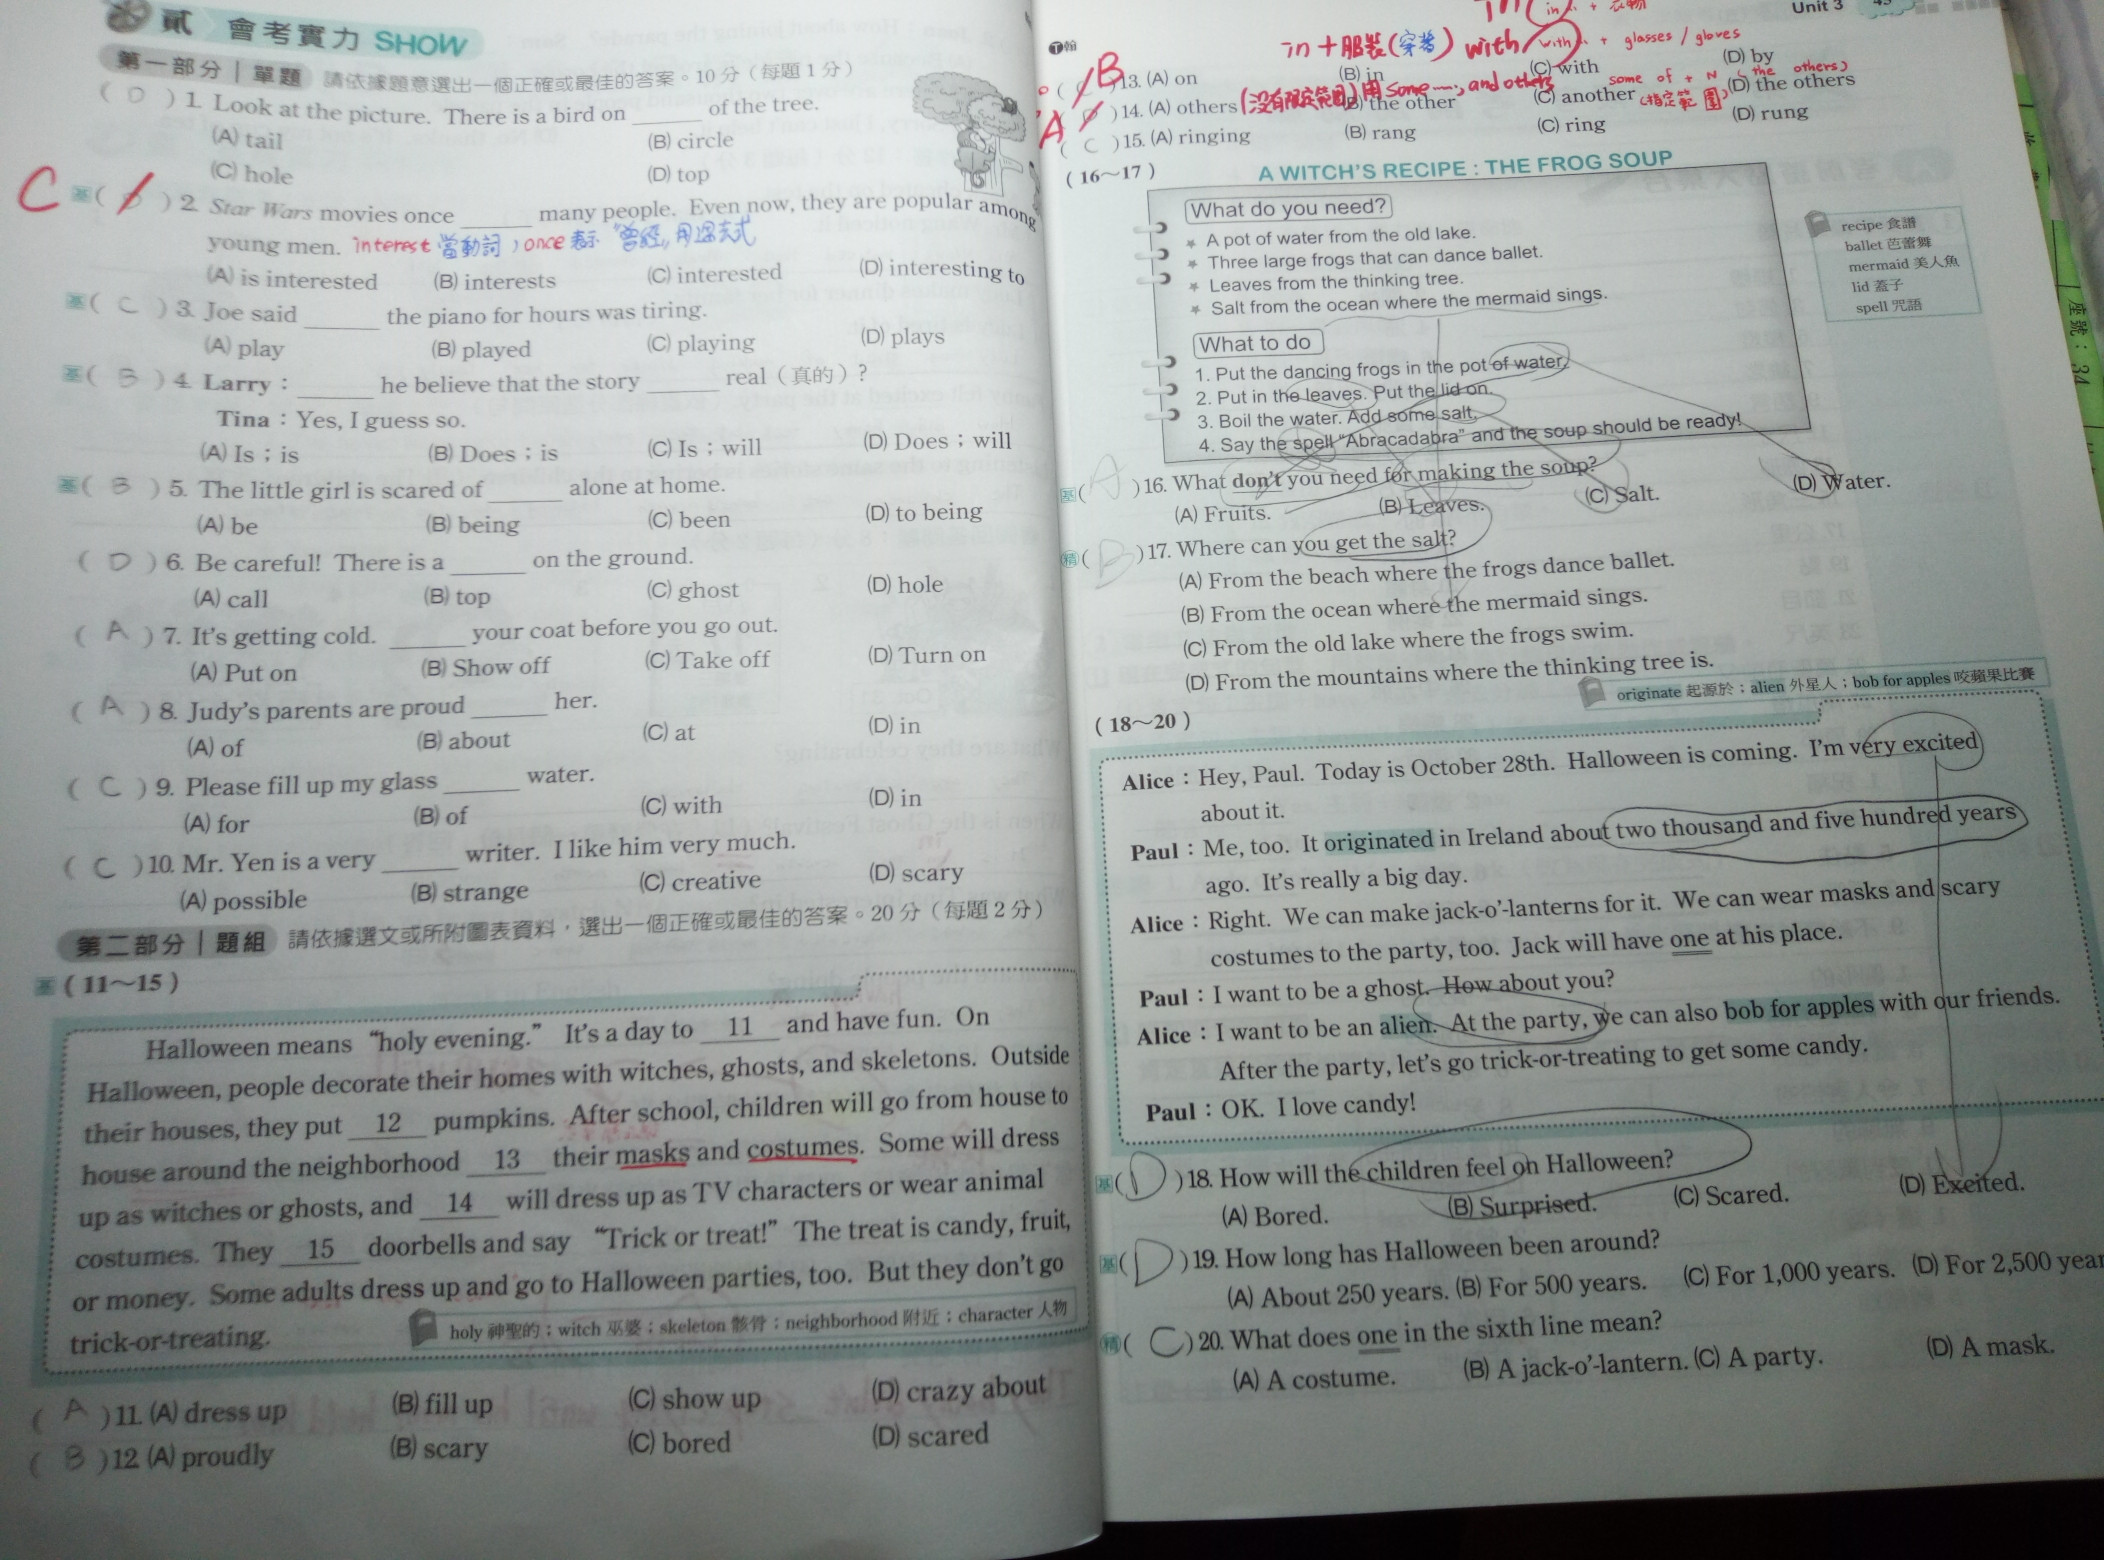 貳 會考實力 SHOW
第一部分｜單題 請依據題意選出一個正確或最佳的答案。10 分（每題 1 分）
( D ) 1. Look at the picture. There is a bird on ______ of the tree.
(A) tail (B) circle
(C) hole (D) top
C 基( ) 2. Star Wars movies once ______ many people. Even now, they are popular among
young men. interest 當動詞, once 表示 "曾經" 用過去式
(A) is interested (B) interests (C) interested (D) interesting to
基( C ) 3. Joe said ______ the piano for hours was tiring.
(A) play (B) played (C) playing (D) plays
基( B ) 4. Larry：______ he believe that the story ______ real（真的）?
Tina：Yes, I guess so.
(A) Is；is (B) Does；is (C) Is；will (D) Does；will
基( B ) 5. The little girl is scared of ______ alone at home.
(A) be (B) being (C) been (D) to being
( D ) 6. Be careful! There is a ______ on the ground.
(A) call (B) top (C) ghost (D) hole
( A ) 7. It's getting cold. ______ your coat before you go out.
(A) Put on (B) Show off (C) Take off (D) Turn on
( A ) 8. Judy's parents are proud ______ her.
(A) of (B) about (C) at (D) in
( C ) 9. Please fill up my glass ______ water.
(A) for (B) of (C) with (D) in
( C ) 10. Mr. Yen is a very ______ writer. I like him very much.
(A) possible (B) strange (C) creative (D) scary
第二部分｜題組 請依據選文或所附圖表資料，選出一個正確或最佳的答案。20 分（每題 2 分）
基 ( 11～15 )
Halloween means “holy evening.” It's a day to 11 and have fun. On
Halloween, people decorate their homes with witches, ghosts, and skeletons. Outside
their houses, they put 12 pumpkins. After school, children will go from house to
house around the neighborhood 13 their masks and costumes. Some will dress
up as witches or ghosts, and 14 will dress up as TV characters or wear animal
costumes. They 15 doorbells and say “Trick or treat!” The treat is candy, fruit,
or money. Some adults dress up and go to Halloween parties, too. But they don't go
trick-or-treating.
holy 神聖的；witch 巫婆；skeleton 骸骨；neighborhood 附近；character 人物
( A ) 11. (A) dress up (B) fill up (C) show up (D) crazy about
( B ) 12. (A) proudly (B) scary (C) bored (D) scared
Unit 3
翰
in + 服裝(穿著) with + glasses / gloves
B ( ) 13. (A) on (B) in (C) with (D) by
(沒有限定範圍) 用 Some ..., and others some of + N (the others) (指定範圍)
A ( ) 14. (A) others (B) the other (C) another (D) the others
( C ) 15. (A) ringing (B) rang (C) ring (D) rung
( 16～17 )
A WITCH'S RECIPE : THE FROG SOUP
What do you need?
* A pot of water from the old lake.
* Three large frogs that can dance ballet.
* Leaves from the thinking tree.
* Salt from the ocean where the mermaid sings.
What to do
1. Put the dancing frogs in the pot of water.
2. Put in the leaves. Put the lid on.
3. Boil the water. Add some salt.
4. Say the spell “Abracadabra” and the soup should be ready!
recipe 食譜
ballet 芭蕾舞
mermaid 美人魚
lid 蓋子
spell 咒語
座號：34
基( A ) 16. What don't you need for making the soup?
(A) Fruits. (B) Leaves. (C) Salt. (D) Water.
精( B ) 17. Where can you get the salt?
(A) From the beach where the frogs dance ballet.
(B) From the ocean where the mermaid sings.
(C) From the old lake where the frogs swim.
(D) From the mountains where the thinking tree is.
originate 起源於；alien 外星人；bob for apples 咬蘋果比賽
( 18～20 )
Alice：Hey, Paul. Today is October 28th. Halloween is coming. I'm very excited
about it.
Paul：Me, too. It originated in Ireland about two thousand and five hundred years
ago. It's really a big day.
Alice：Right. We can make jack-o'-lanterns for it. We can wear masks and scary
costumes to the party, too. Jack will have one at his place.
Paul：I want to be a ghost. How about you?
Alice：I want to be an alien. At the party, we can also bob for apples with our friends.
After the party, let's go trick-or-treating to get some candy.
Paul：OK. I love candy!
基( D ) 18. How will the children feel on Halloween?
(A) Bored. (B) Surprised. (C) Scared. (D) Excited.
基( D ) 19. How long has Halloween been around?
(A) About 250 years. (B) For 500 years. (C) For 1,000 years. (D) For 2,500 year
精( C ) 20. What does one in the sixth line mean?
(A) A costume. (B) A jack-o'-lantern. (C) A party. (D) A mask.